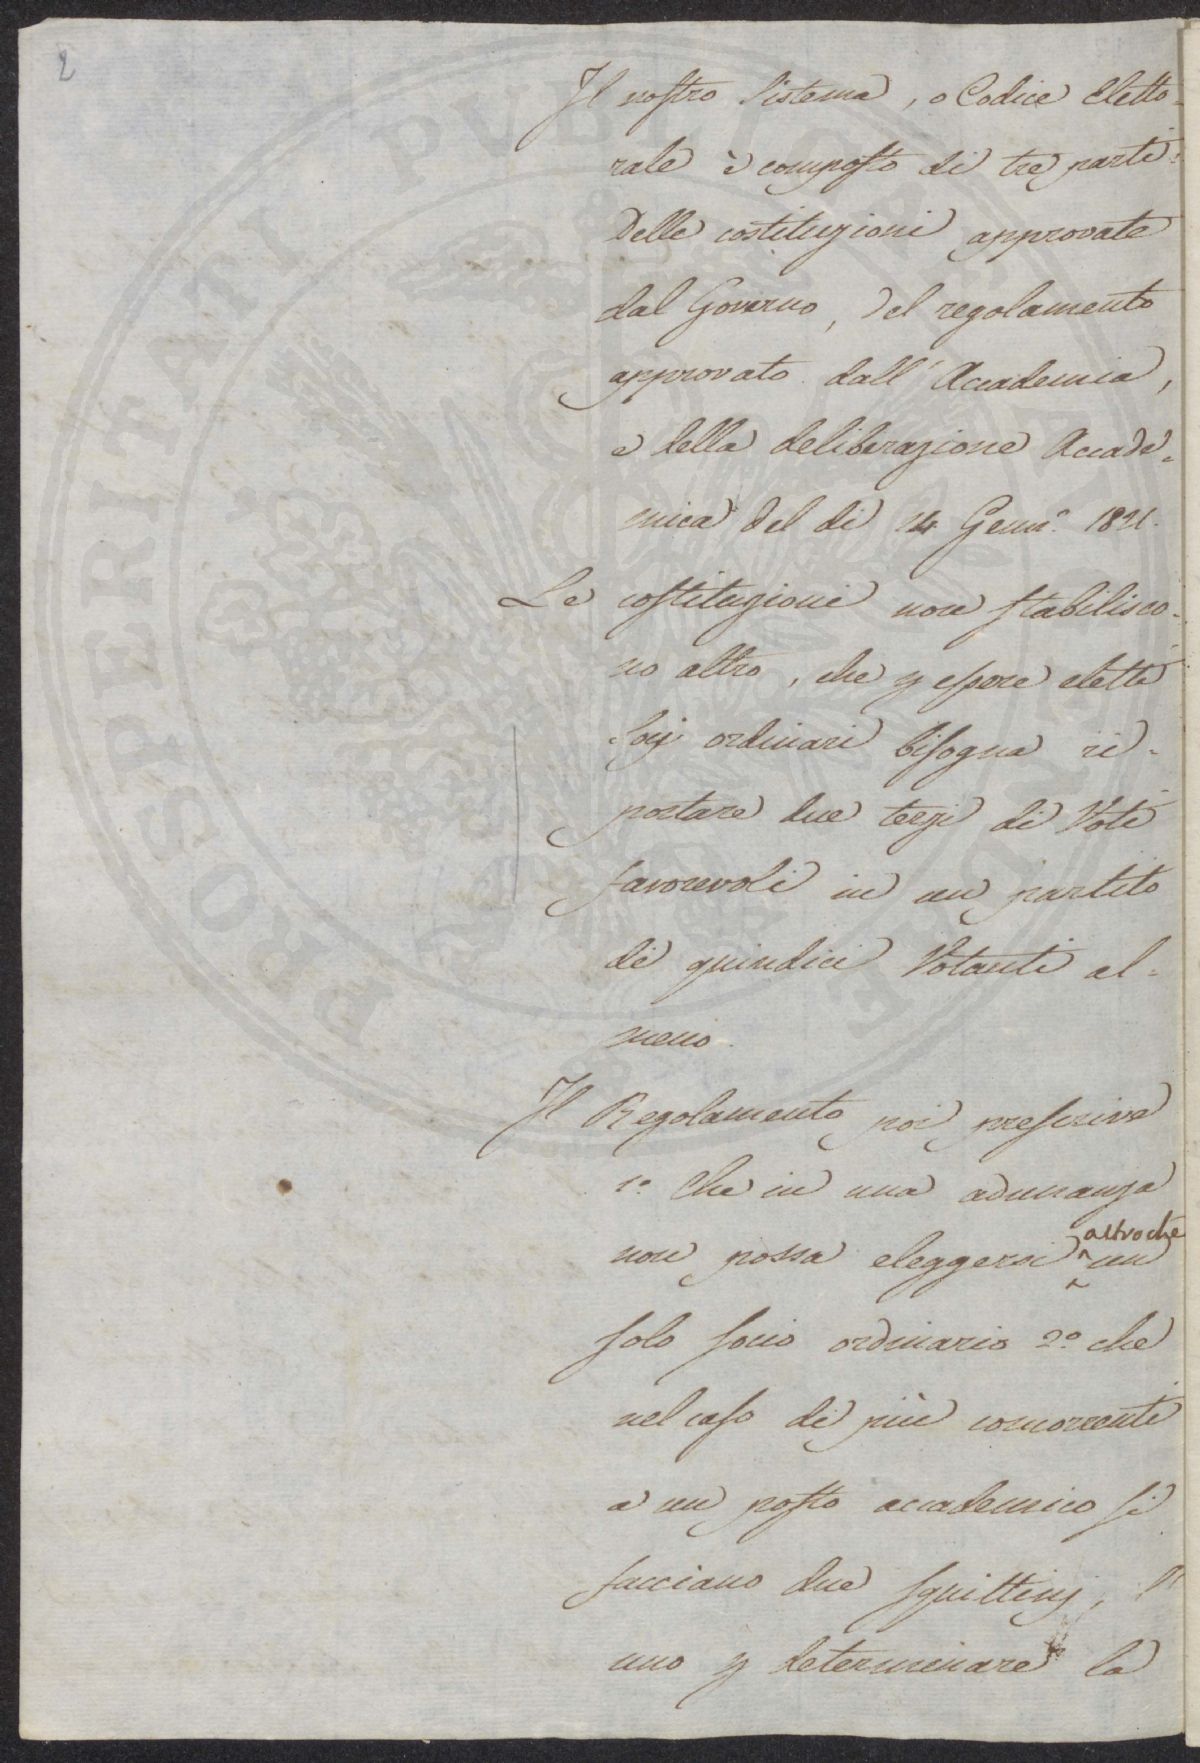 2
Il nostro Sistema, o Codice Eletto-
rale è composto di tre parti:
Delle costituzioni approvate
dal Governo, del regolamento
approvato dall'Accademia,
e della deliberazione Accade-
mica del di 14 Genn.o 1821.
Le costituzioni non stabilisco-
no altro, che p essere eletti
Socj ordinari bisogna ri-
portare due terzi di Voti
favorevoli in un partito
di quindici Votanti al-
meno.
Il Regolamento poi prescrive
1.o Che in una adunanza
altroche
non possa eleggersi un
solo socio ordinario 2.o che
nel caso di più concorrenti
a un posto accademico si
facciano due squittinj, l'
uno p determinare la
PROSPERITATI PUBLICAE AUGENDAE